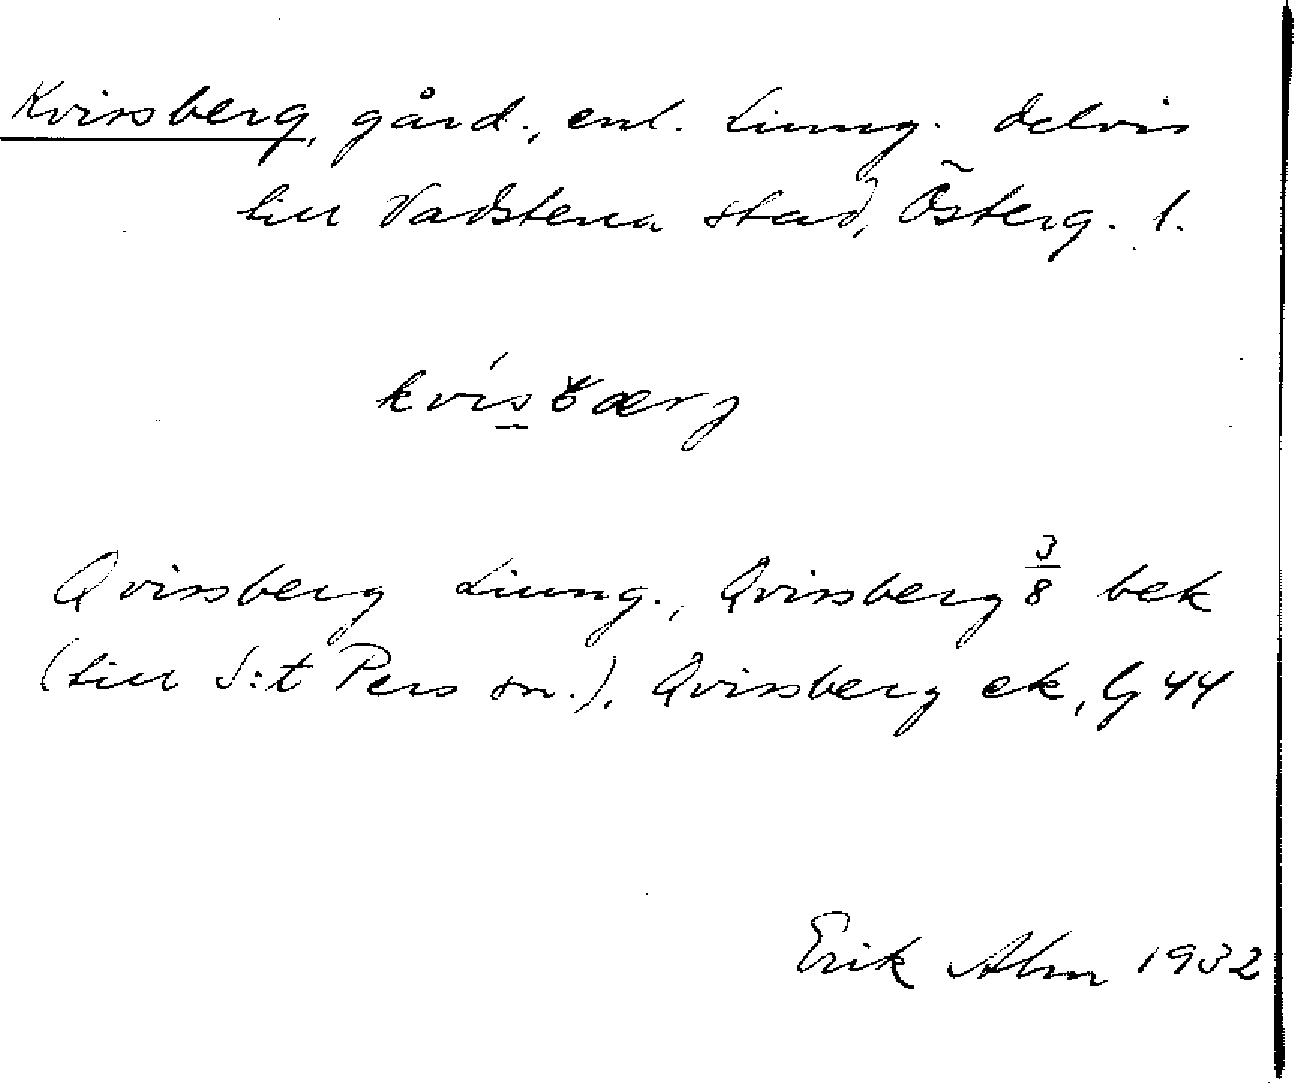 Kvissberg, gård, enl. Liung. delvis
till Vadstena stad, Österg. l.
kvisbærj
Qvissberg Liung., Qvissberg 3/8 bek
(till S:t Pers sn.). Qvissberg ek, Lj 44
Erik Alm 1932